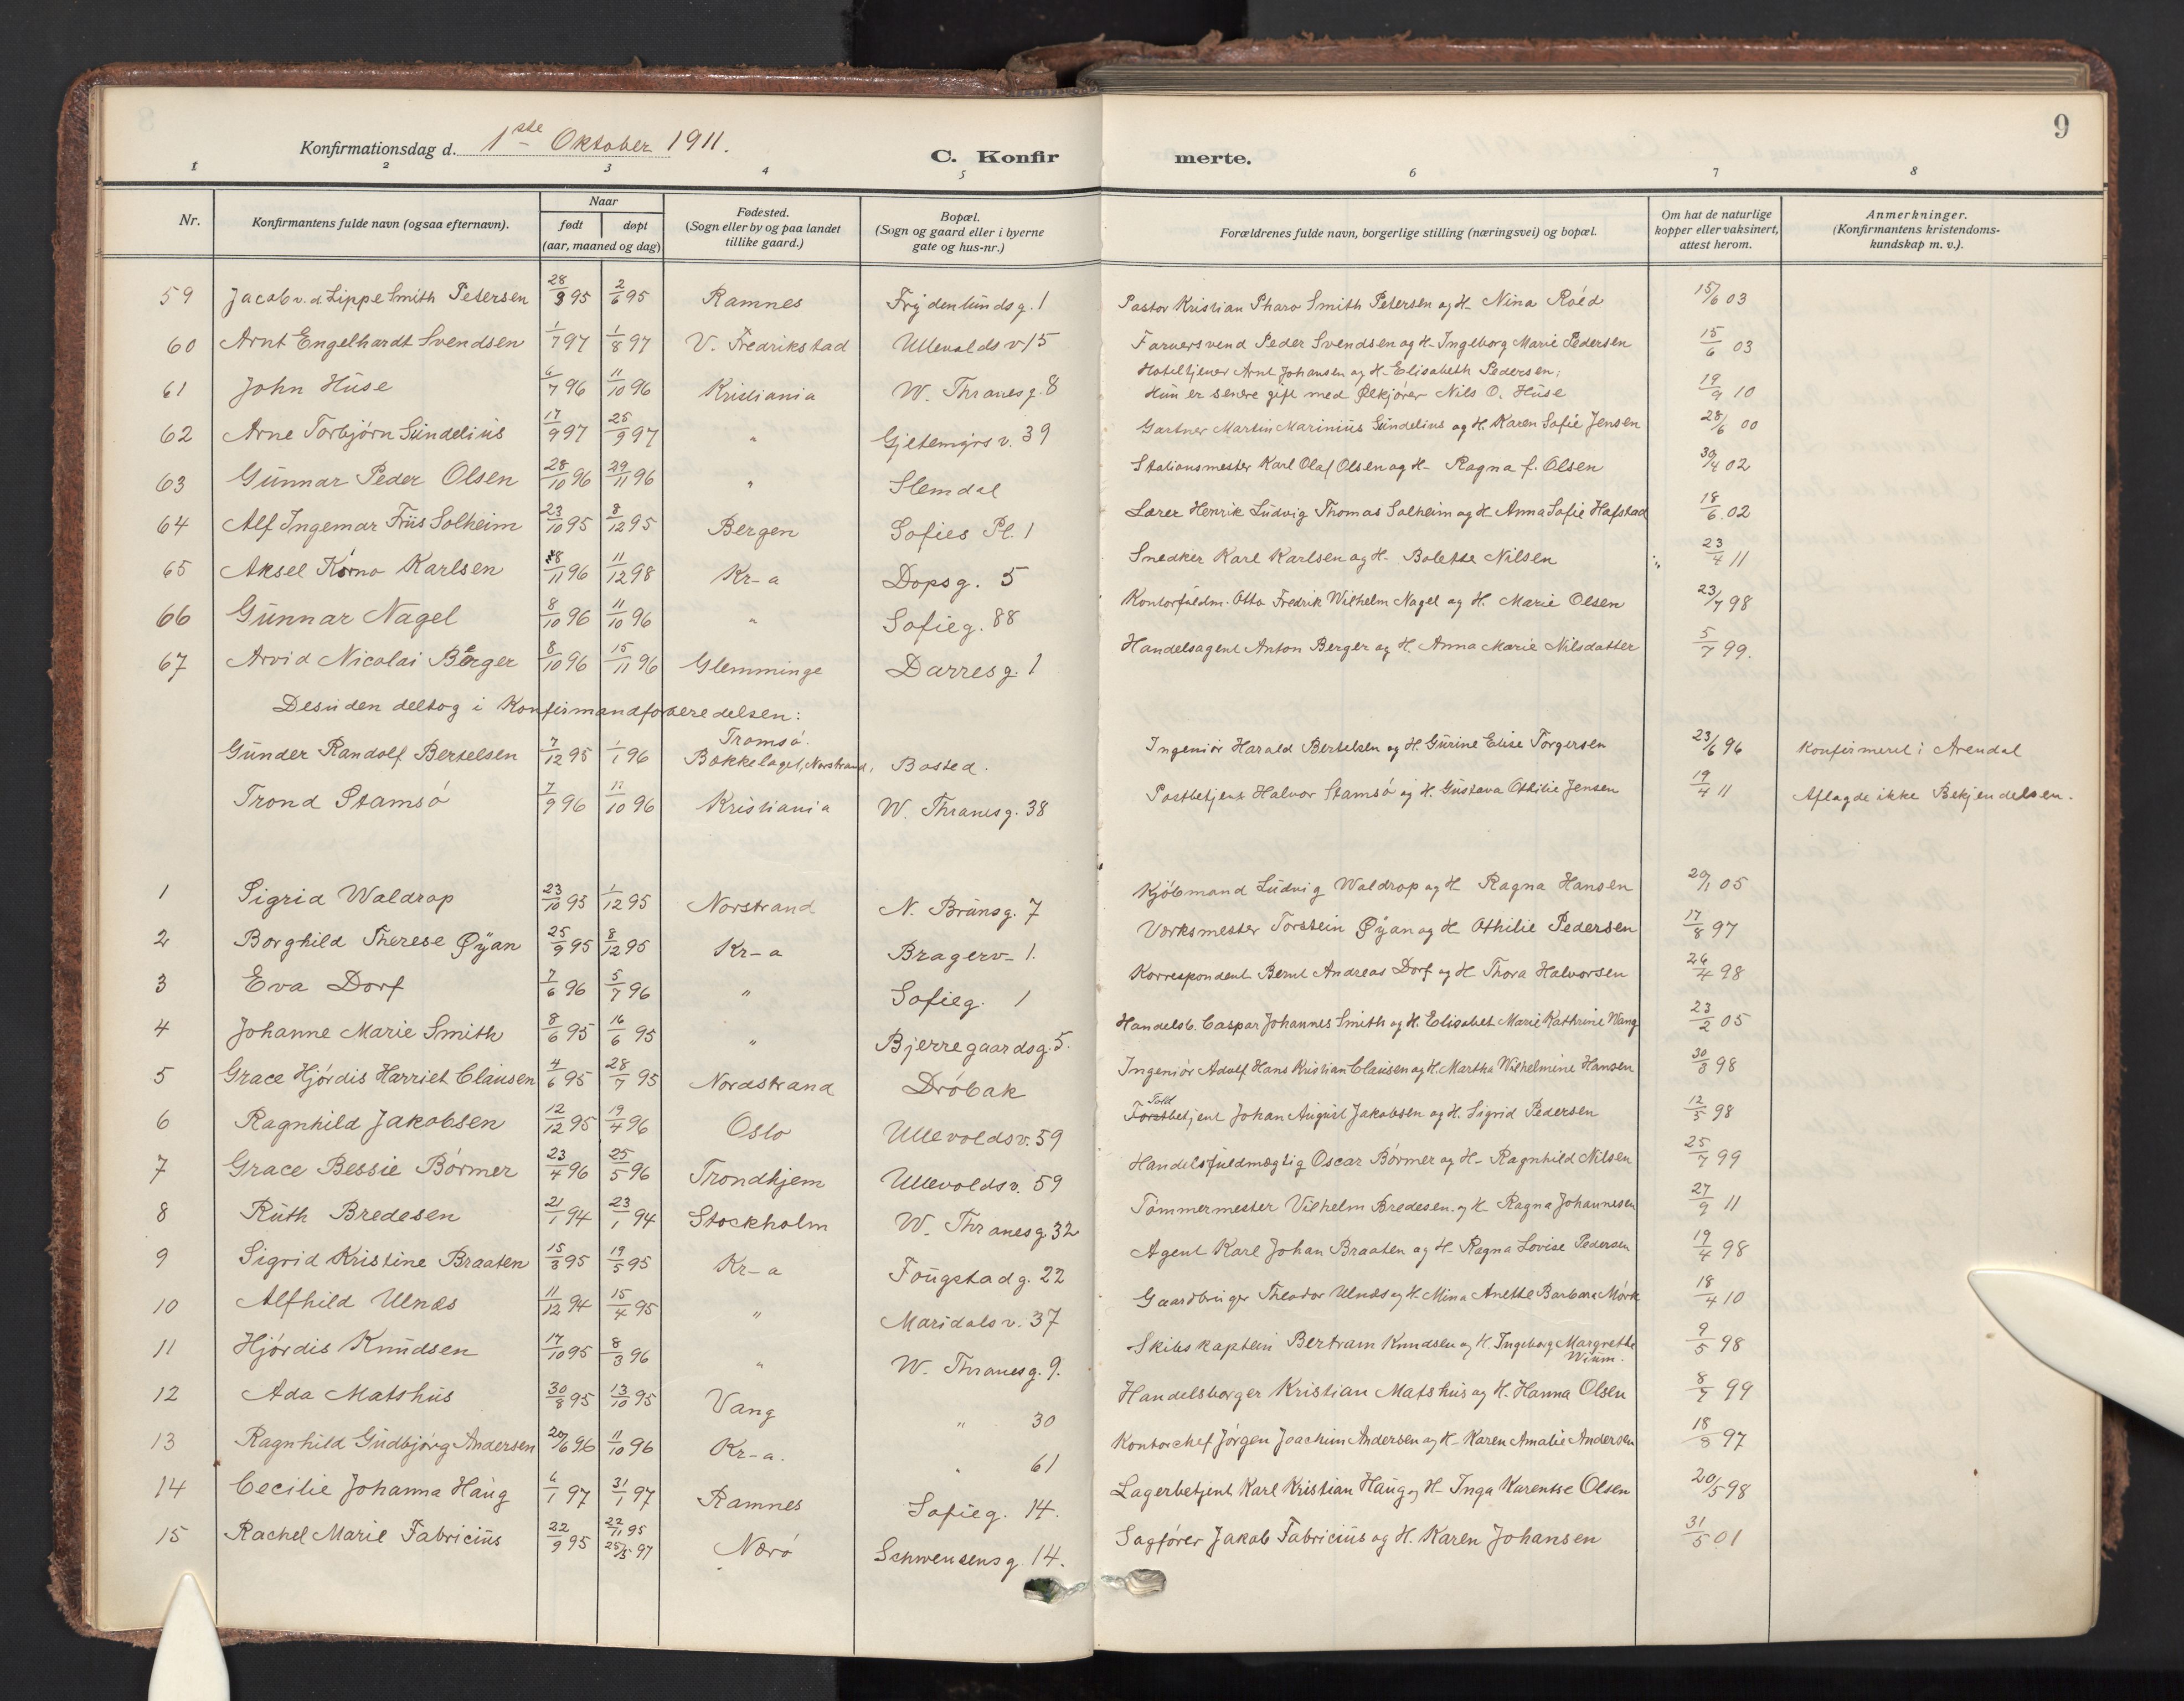 Konfirmationsdag d. 1ste Oktober 1911.
C. Konfirmerte.
9
1 2 3 4 5 6 7 8
Nr. | Konfirmantens fulde navn (ogsaa efternavn). | Naar født døpt (aar, maaned og dag) | Fødested. (Sogn eller by og paa landet tillike gaard.) | Bopæl. (Sogn og gaard eller i byerne gate og hus-nr.) | Forældrenes fulde navn, borgerlige stilling (næringsvei) og bopæl. | Om hat de naturlige kopper eller vaksinert, attest herom. | Anmerkninger. (Konfirmantens kristendoms-kundskap m. v.).
59 Jacob v. d Lippe Smith Petersen 28/3 95 2/6 95 Ramnes Frydenlundsg. 1 Pastor Kristian Pharo Smith Petersen og H. Nina Roéd 15/6 03
60 Arnt Engelhardt Svendsen 1/7 97 1/8 97 V. Fredrikstad Ullevoldsv 15 Farversvend Peder Svendsen og H. Ingeborg Marie Pedersen 15/6 03
61 John Huse 6/7 96 11/10 96 Kristiania W. Thranesg. 8 Hoteltjener Arnt Johansen og H. Elisabeth Pedersen;
Hun er senere gift med Ølkjører Nils O. Huse 19/9 10
62 Arne Torbjørn Sundelius 17/9 97 25/9 97 " Gjetemyrs v. 39 Gartner Martin Marinius Sundelius og H. Karen Sofie Jensen 28/6 00
63 Gunnar Peder Olsen 28/10 96 29/11 96 " Slemdal Stationsmester Karl Olaf Olsen og H. Ragna f. Olsen 30/4 02
64 Alf Ingemar Friis Solheim 23/10 95 8/12 95 Bergen Sofies Pl. 1 Lærer Henrik Ludvig Thomas Solheim og H. Anna Sofie Hafstad 18/6 02
65 Aksel Korno Karlsen 8/11 96 11/12 98 Kr-a Dopsg. 5 Snedker Karl Karlsen og H. Bolette Nilsen 23/4 11
66 Gunnar Nagel 8/10 96 11/10 96 " Sofieg. 88 Kontorfuldm. Otto Fredrik Wilhelm Nagel og H. Marie Olsen 23/7 98
67 Arvid Nicolai Berger 8/10 96 15/11 96 Glemminge Darresg. 1 Handelsagent Anton Berger og H. Anna Marie Nilsdatter 5/7 99.
Desuden deltog i Konfirmandforberedelsen:
Gunder Randolf Bertelsen 7/12 95 1/1 96 Tromsö. Bækkelaget, Norstrand, Bosted. Ingeniør Harald Bertelsen og H. Gurine Elise Torgersen 23/6 96 Konfirmert i Arendal
Trond Stamsö 7/9 96 11/10 96 Kristiania W. Thranesg. 38 Postbetjent Halvor Stamsö og H. Gustava Othilie Jensen 19/4 11 Aflagde ikke Bekjendelsen.
1 Sigrid Waldrop 23/10 95 1/12 95 Norstrand N. Brunsg. 7 Kjöbmand Ludvig Waldrop og H. Ragna Hansen 29/1 05
2 Borghild Therese Øyan 25/9 95 8/12 95 Kr-a Bragerv. 1. Værksmester Torstein Øyan og H. Othilie Pedersen 17/8 97
3 Eva Dorf 7/6 96 5/7 96 " Sofieg. 1 Korrespondent Bernt Andreas Dorf og H. Thora Halvorsen 26/4 98
4 Johanne Marie Smith 8/6 95 16/6 95 " Bjerregaardsg. 5. Handelsb. Caspar Johannes Smith og H. Elisabet Marie Kathrine Wang 23/2 05
5 Grace Hjördis Harriet Clausen 4/6 95 28/7 95 Nordstrand Dröbak Ingeniör Adolf Hans Kristian Clausen og H. Martha Wilhelmine Hansen 30/3 98
6 Ragnhild Jakobsen 12/12 95 19/4 96 Oslo Ullevoldsv. 59 Toldbetjent Johan August Jakobsen og H. Sigrid Pedersen 12/5 98
7 Grace Bessie Börmer 23/4 96 25/5 96 Trondhjem Ullevoldsv. 59 Handelsfuldmægtig Oscar Börmer og H. Ragnhild Nilsen 25/7 99
8 Ruth Bredesen 21/1 94 23/1 94 Stockholm W. Thranesg. 32 Tömmermester Vilhelm Bredesen og H. Ragna Johannesen 27/9 11
9 Sigrid Kristine Braaten 15/3 95 19/5 95 Kr-a Fougstadg. 22 Agent Karl Johan Braaten og H. Ragna Lovise Pedersen 19/4 98
10 Alfhild Ulnæs 11/12 94 15/4 95 " Maridalsv. 37 Gaardbruger Theodor Ulnæs og H. Mina Anette Barbara Mörk 18/4 10
11 Hjördis Knudsen 17/10 95 8/3 96 " W. Thranesg. 9. Skibskaptein Bertram Knudsen og H. Ingeborg Margrethe Wium. 9/5 98
12 Ada Matshus 30/8 95 13/10 95 Vang " 30 Handelsborger Kristian Matshus og H. Hanna Olsen 8/7 99
13 Ragnhild Gudbjörg Andersen 20/6 96 11/10 96 Kr-a. " 61 Kontorchef Jörgen Joachim Andersen og H. Karen Amalie Andersen 18/8 97
14 Cecilie Johanna Haug 6/1 97 31/1 97 Ramnes Sofieg. 14. Lagerbetjent Karl Kristian Haug og H. Inga Karentse Olsen 20/5 98
15 Rachel Marie Fabricius 22/9 95 22/11 95 25/5 97 Nærö Schwensensg. 14. Sagförer Jakob Fabricius og H. Karen Johansen 31/5 01